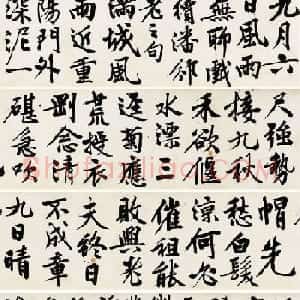 九月六
日風雨
無聊戲
續潘邠
老之句
滿城風
雨近重
陽門外
深泥一
尺強勢
接九
禾欲偃
水漂
逕菊應
荒授衣
剛念
碪急吹
帽先
愁白髮
涼何必
催租能
敗興老
夫終日
不成章
九日晴